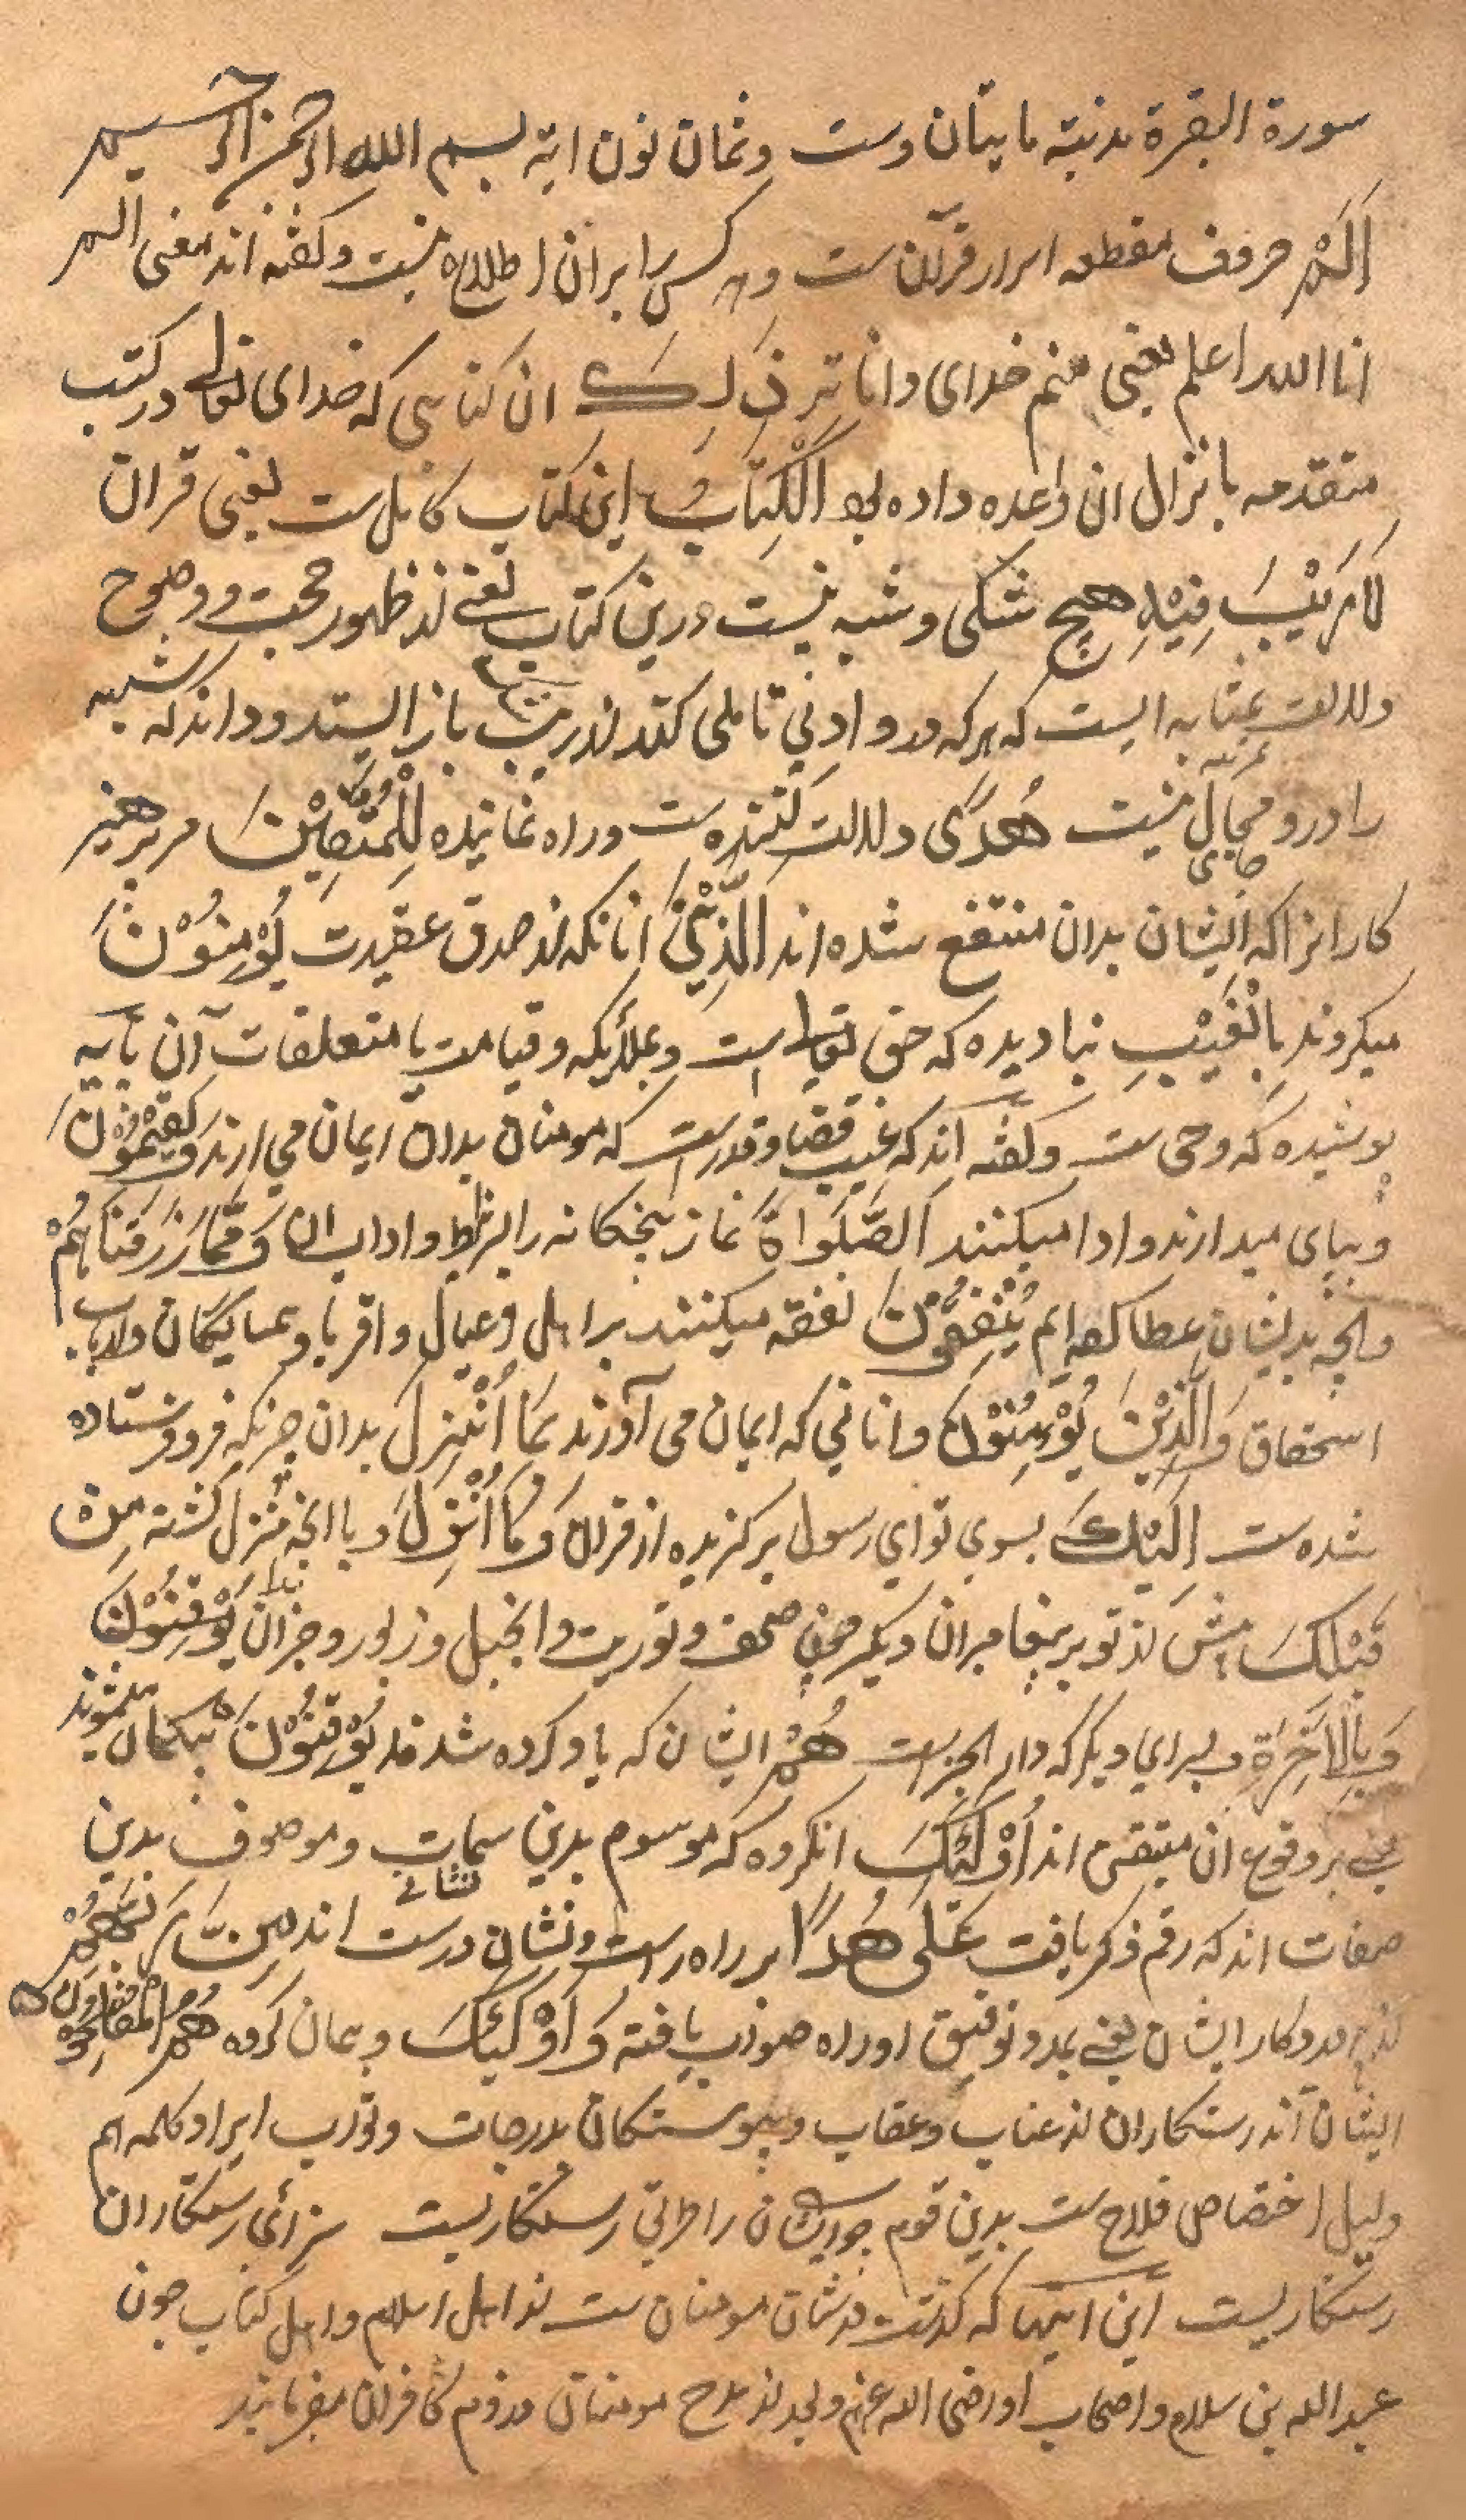 سورة البقرة مدنیته مایتان وست وثمان نون ایة بسم الله الرحمن الرحیم
الٓمّٓ حروف مقطعه اسرار قرآن ست وهر کس را بران اطلاع نیست وکفته اند معنی الم
انا الله اعلم یعنی منم خدای دانا تر ذٰلِکَ ان کتابی که خدای تعالی در کتب
متقدمه بانزال ان واعده داده بود الْکِتَابُ این کتاب کامل ست یعنی قران
لَا رَیْبَ فِیْهِ هیچ شکی وشبه نیست درین کتاب یعنی از ظهور حجت و وضوح
دلالت بمثابه ایست که هر که درو ادنی تاملی کند از ریب باز ایستد وداند که شبهه
را درو مجال نیست هُدًی دلالت کننده ست وراه نماینده لِلْمُتَّقِیْنَ مر پرهیز
کارانرا که ایشان بدان منتفع شده اند الَّذِیْنَ انانکه از صدق عقیدت یُؤْمِنُوْنَ
میکروند بِالْغَیْبِ بنادیده که حق تعالی است وبملایکه وقیامت با متعلقات آن یا به
پوشیده که وحی ست وکفته اند که غیب قضا وقدرست که مومنان بدان ایمان می ارند وَیُقِیْمُوْنَ
وبپای میدارند وادا میکنند الصَّلٰواةَ نماز پنجکانه را بشرایط واداب ان وَمِمَّا رَزَقْنَاهُمْ
وانچه بدیشان عطا کرده ایم یُنْفِقُوْنَ نفقه میکنند بر اهل وعیال واقربا وهمسایکان وارباب
استحقاق وَالَّذِیْنَ یُؤْمِنُوْنَ وانانی که ایمان می آورند بِمَا اُنْزِلَ بدان چیزیکه فرو فرستاده
شده ست اِلَیْکَ بسوی تو ای رسول برکزیده از قران وَمَا اُنْزِلَ وبا انچه منزل کشته مِنْ
قَبْلِکَ پیش از تو بر پیغامبران دیکر صحف وتوریت وانجیل وزبور وجزان یُوْقِنُوْنَ
وَبِالْاٰخِرَةِ وبسرای دیکر که دار الجزاست هُمْ ایشان که یاد کرده شدند یُوْقِنُوْنَ بیکمان میشوند
یعنی بر وقوع ان متیقن اند اُوْلٰئِکَ انکروه که موسوم بدین سمات وموصوف بدین
نشانی
صفات اند که رقم ذکر یافت عَلٰی هُدًا بر راه راست ونشان درست اند مِنْ رَبِّهِمْ
از پروردکار ایشان یعنی بمدد توفیق او راه صواب یافته وَاُوْلٰئِکَ وهمان کروه هُمُ الْمُفْلِحُوْنَ
ایشان اند رستکاران از عذاب وعقاب وپیوستکان بدرجات وثواب ایراد کلمه هم
دلیل اختصاص فلاح ست بدین قوم جز ایشان را طریق رستکاریست سزائی رستکاران
رستکاریست این ایتها که کذشت در شان مومنان ست از اهل اسلام واهل کتاب چون
عبد الله بن سلام واصحاب او رضی الله عنهم وبعد از مدح مومنان در ذم کافران میفرماید